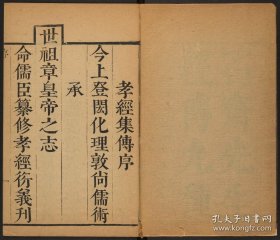 孝經集傳序
今上登閎化理敦尙儒術
承
世祖章皇帝之志
命儒臣纂修孝經衍義刋
序
孔夫子旧书网